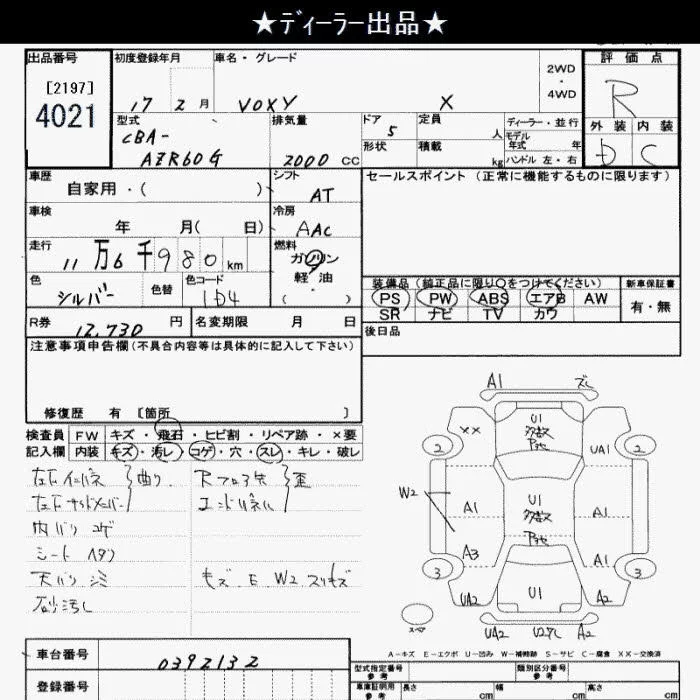 ★ディーラー出品★
出品番号 初度登録年月 車名・グレード 2WD 評価点
[2197] 4WD
4021 17 2月 VOXY X R
型式 排気量 ドア 定員 ディーラー・並行 外装 内装
CBA- 5 人 モデル年式 年
AZR60G 2000 cc 形状 積載 kg ハンドル 左・右 D C
車歴 シフト セールスポイント (正常に機能するものに限ります)
自家用・( ) AT
車検 冷房
年 月( 日) AAC
走行 燃料
11万6千980km ガソリン
色 色替 色コード 軽・油 装備品 (純正品に限り○をつけてください) 新車保証書
シルバー 1D4 ・( ) PS PW ABS エアB AW 有・無
SR ナビ TV カワ
R券 12,730円 名変期限 月 日 後日品
注意事項申告欄(不具合内容等は具体的に記入して下さい)
修復歴 有 [箇所 ]
検査員 FW キズ・飛石・ヒビ割・リペア跡・×要
記入欄 内装 キズ・汚レ・コゲ・穴・スレ・キレ・破レ
左右インパネ 曲り Rフロア 歪
左右サイドメンバー エンドパネル
内バリ コゲ
シート
天バリ キズ E W2 スリキズ
A1 ズレ
U1
XX 多数 2
2 UA1
W2 A1 U1 A1
多数
A3 A1
3 3
UA2 U1 A2
スペア UA2 A2
A-キズ E-エクボ U-凹み W-補修跡 S-サビ C-腐食 XX-交換済
車台番号 0392132 型式指定番号 参考 類別区分番号 参考
登録番号 車庫証明用 参考 長さ cm 幅 cm 高さ cm